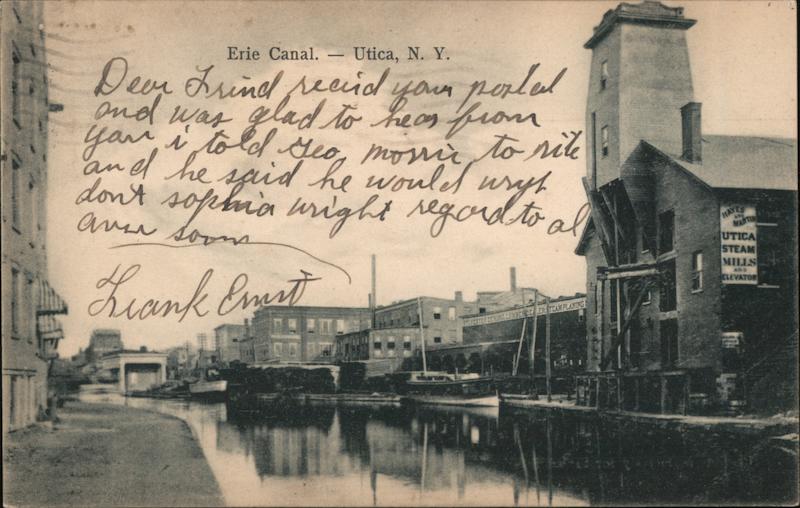 Erie Canal. — Utica, N. Y.
Dear Frind recid your postal
and was glad to hear from
you i told Geo morris to rite
and he said he would wryt
dont sophia wright regard to al
aver soon
Frank Ernst
HAYES
AND
MARTIN
UTICA
STEAM
MILLS
AND
ELEVATOR
STEAM PLANING